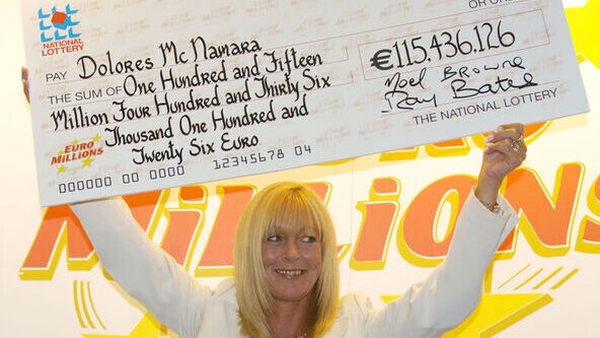 NATIONAL
LOTTERY
OR OR
PAY Dolores Mc Namara
THE SUM OF One Hundred and Fifteen
Million Four Hundred and Thirty Six
Thousand One Hundred and
Twenty Six Euro
€115,436,126
Noel Browne
Ray Bates
THE NATIONAL LOTTERY
EURO
MILLIONS
000000 00 0000 12345678 04
MILLiONS
MILLIONS